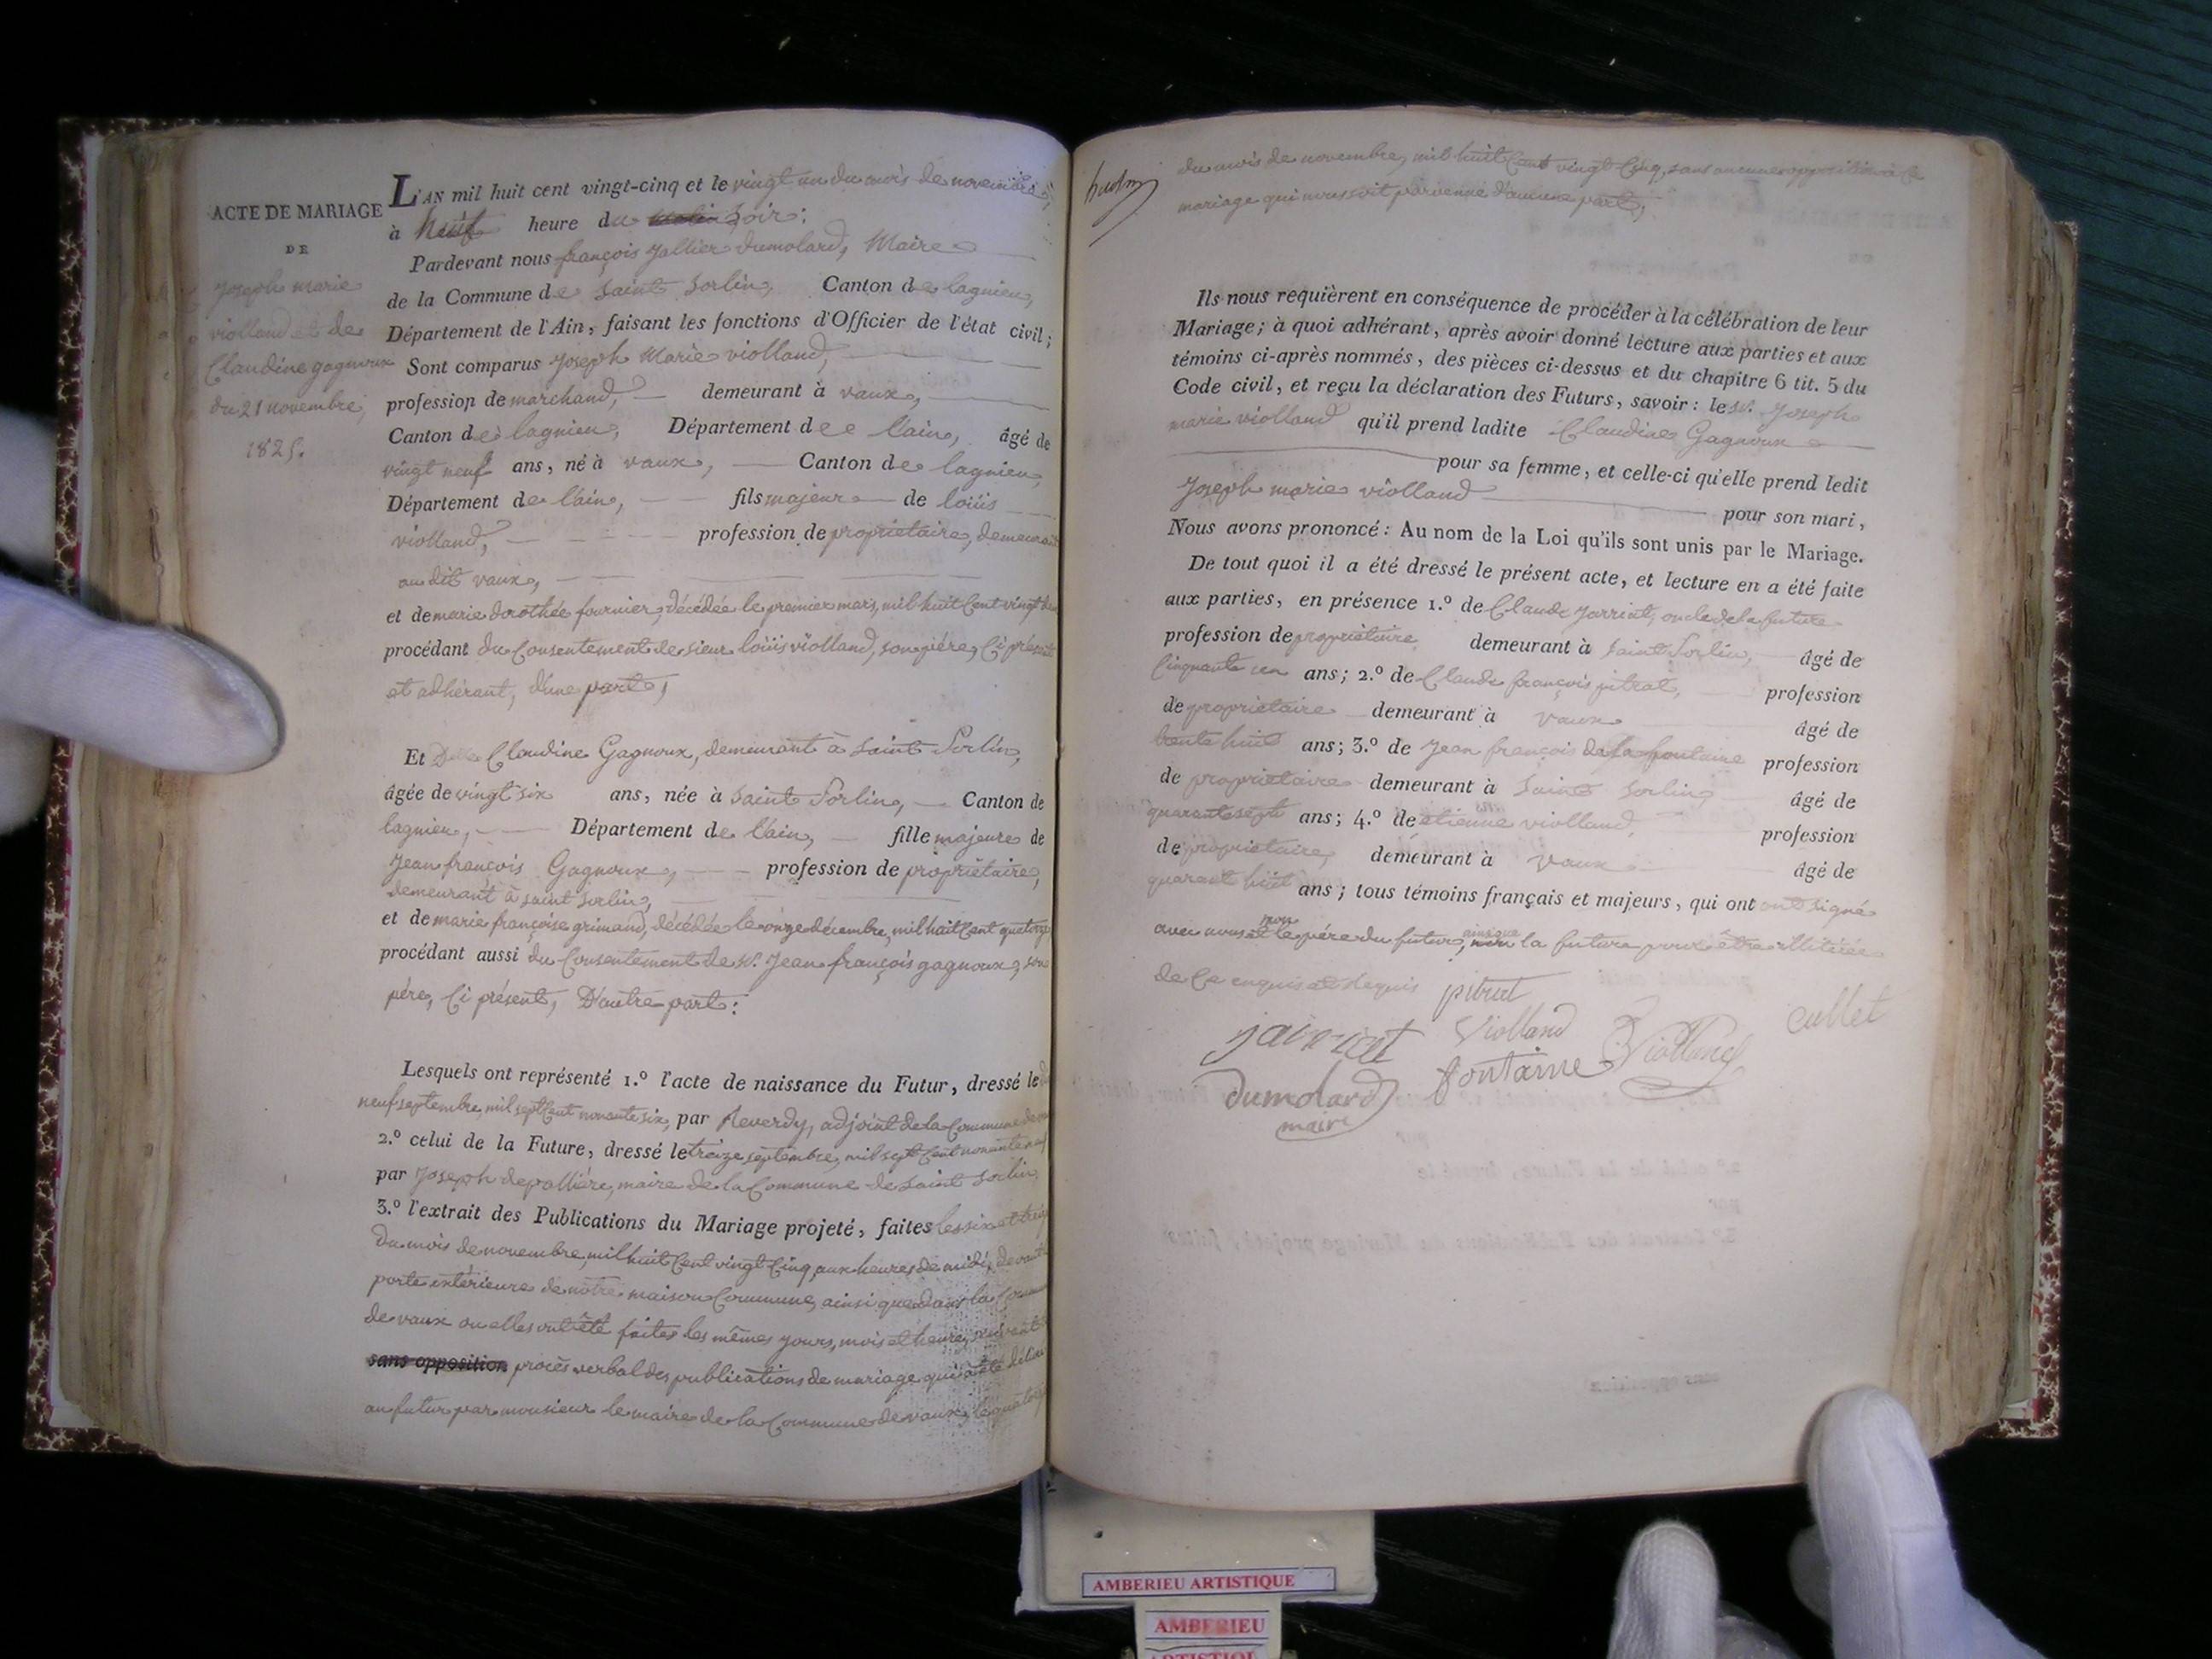 ACTE DE MARIAGE
DE
Joseph marie
violland et de
Claudine gagnoux
du 21 novembre,
1825.
L'AN mil huit cent vingt-cinq et le vingt un du mois de novembre,
à neuf heure du matin soir:
Pardevant nous françois Jallier dumolard, Maire
de la Commune de saint Sorlin, Canton de lagnieu,
Département de l'Ain, faisant les fonctions d'Officier de l'état civil;
Sont comparus Joseph Marie violland,
profession de marchand, demeurant à vaux,
Canton de lagnieu, Département de l'ain, âgé de
vingt neuf ans, né à vaux, Canton de lagnieu,
Département de l'ain, fils majeur de loüis
violland, profession de proprietaire, demeurant
au dit vaux,
et de marie dorothée fournier, décédée le premier mars, mil huit Cent vingt
procédant du Consentement de sieur loüis violland, son père, Ci présent
et adhérant, d'une part,
Et Delle Claudine Gagnoux, demeurant à saint Sorlin,
âgée de vingt six ans, née à saint Sorlin, Canton de
lagnieu, Département de l'ain, fille majeure de
Jean françois Gagnoux, profession de propriétaire,
demeurant à saint sorlin,
et de marie françoise grimand, décédée le onze décembre, mil huit Cent quatorze
procédant aussi du Consentement de Sr. Jean françois gagnoux, son
père, Ci présent, D'autre part:
Lesquels ont représenté 1.º l'acte de naissance du Futur, dressé le
neuf septembre, mil sept Cent nonante six, par Reverdy, adjoint de la Commune de
2.º celui de la Future, dressé le treize septembre, mil sept Cent nonante neuf
par Joseph depallière, maire de la Commune de saint Sorlin
3.º l'extrait des Publications du Mariage projeté, faites les six et treize
du mois de novembre, mil huit Cent vingt Cinq, aux heures de midi, devant
porte extérieure de nôtre maison Commune, ainsi que dans la Commune
de vaux ou elles ont été faites les mêmes jours, mois et heure, suivant
sans opposition procès verbal des publications de mariage qui a été délivré
au futur par monsieur le maire de la Commune de vaux, le quatorze
du mois de novembre, mil huit Cent vingt Cinq, sans aucune opposition à ce
mariage qui nous soit parvenue d'aucune part,
Ils nous requièrent en conséquence de procéder à la célébration de leur
Mariage; à quoi adhérant, après avoir donné lecture aux parties et aux
témoins ci-après nommés, des pièces ci-dessus et du chapitre 6 tit. 5 du
Code civil, et reçu la déclaration des Futurs, savoir: le Sr. Joseph
marie violland qu'il prend ladite Claudine Gagnoux
pour sa femme, et celle-ci qu'elle prend ledit
Joseph marie violland pour son mari,
Nous avons prononcé: Au nom de la Loi qu'ils sont unis par le Mariage.
De tout quoi il a été dressé le présent acte, et lecture en a été faite
aux parties, en présence 1.º de Claude Jarriat, oncle de la future
profession de propriétaire demeurant à saint Sorlin, âgé de
Cinquante un ans; 2.º de Claude françois pitrat, profession
de proprietaire demeurant à vaux âgé de
trente huit ans; 3.º de Jean françois de la fontaine profession
de proprietaire demeurant à saint Sorlin, âgé de
quarante sept ans; 4.º de étienne violland, profession
de propriétaire, demeurant à vaux âgé de
quarant huit ans; tous témoins français et majeurs, qui ont ont signé
avec nous et non le père du futur, ainsi que la future pour être illitérée
de Ce enquis et requis
pitrat
jarriat
Violland
Violland
cullet
fontaine
Dumolard
maire